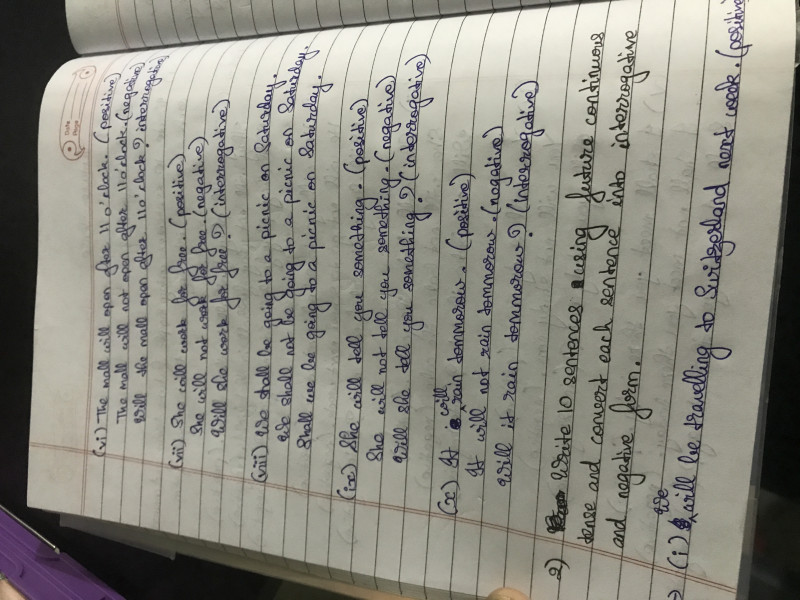 Date
Page
(vi) The mall will open after 11 o'clock. (positive)
The mall will not open after 11 o'clock. (negative)
Will the mall open after 11 o'clock? interrogative
(vii) She will work for free. (positive)
She will not work for free. (negative)
Will she work for free? (interrogative)
(viii) We shall be going to a picnic on Saturday.
We shall not be going to a picnic on Saturday.
Shall we be going to a picnic on Saturday.
(ix) She will tell you something. (positive)
She will not tell you something. (negative)
Will she tell you something? (interrogative)
(x) It will rain tommorow. (positive)
It will not rain tommorow. (nagative)
Will it rain tommorow? (interrogative)
2) Write 10 sentences using future continuous
tense and convert each sentence into interrogative
and negative form.
→ (i) We will be travelling to Switzerland next week. (positive)